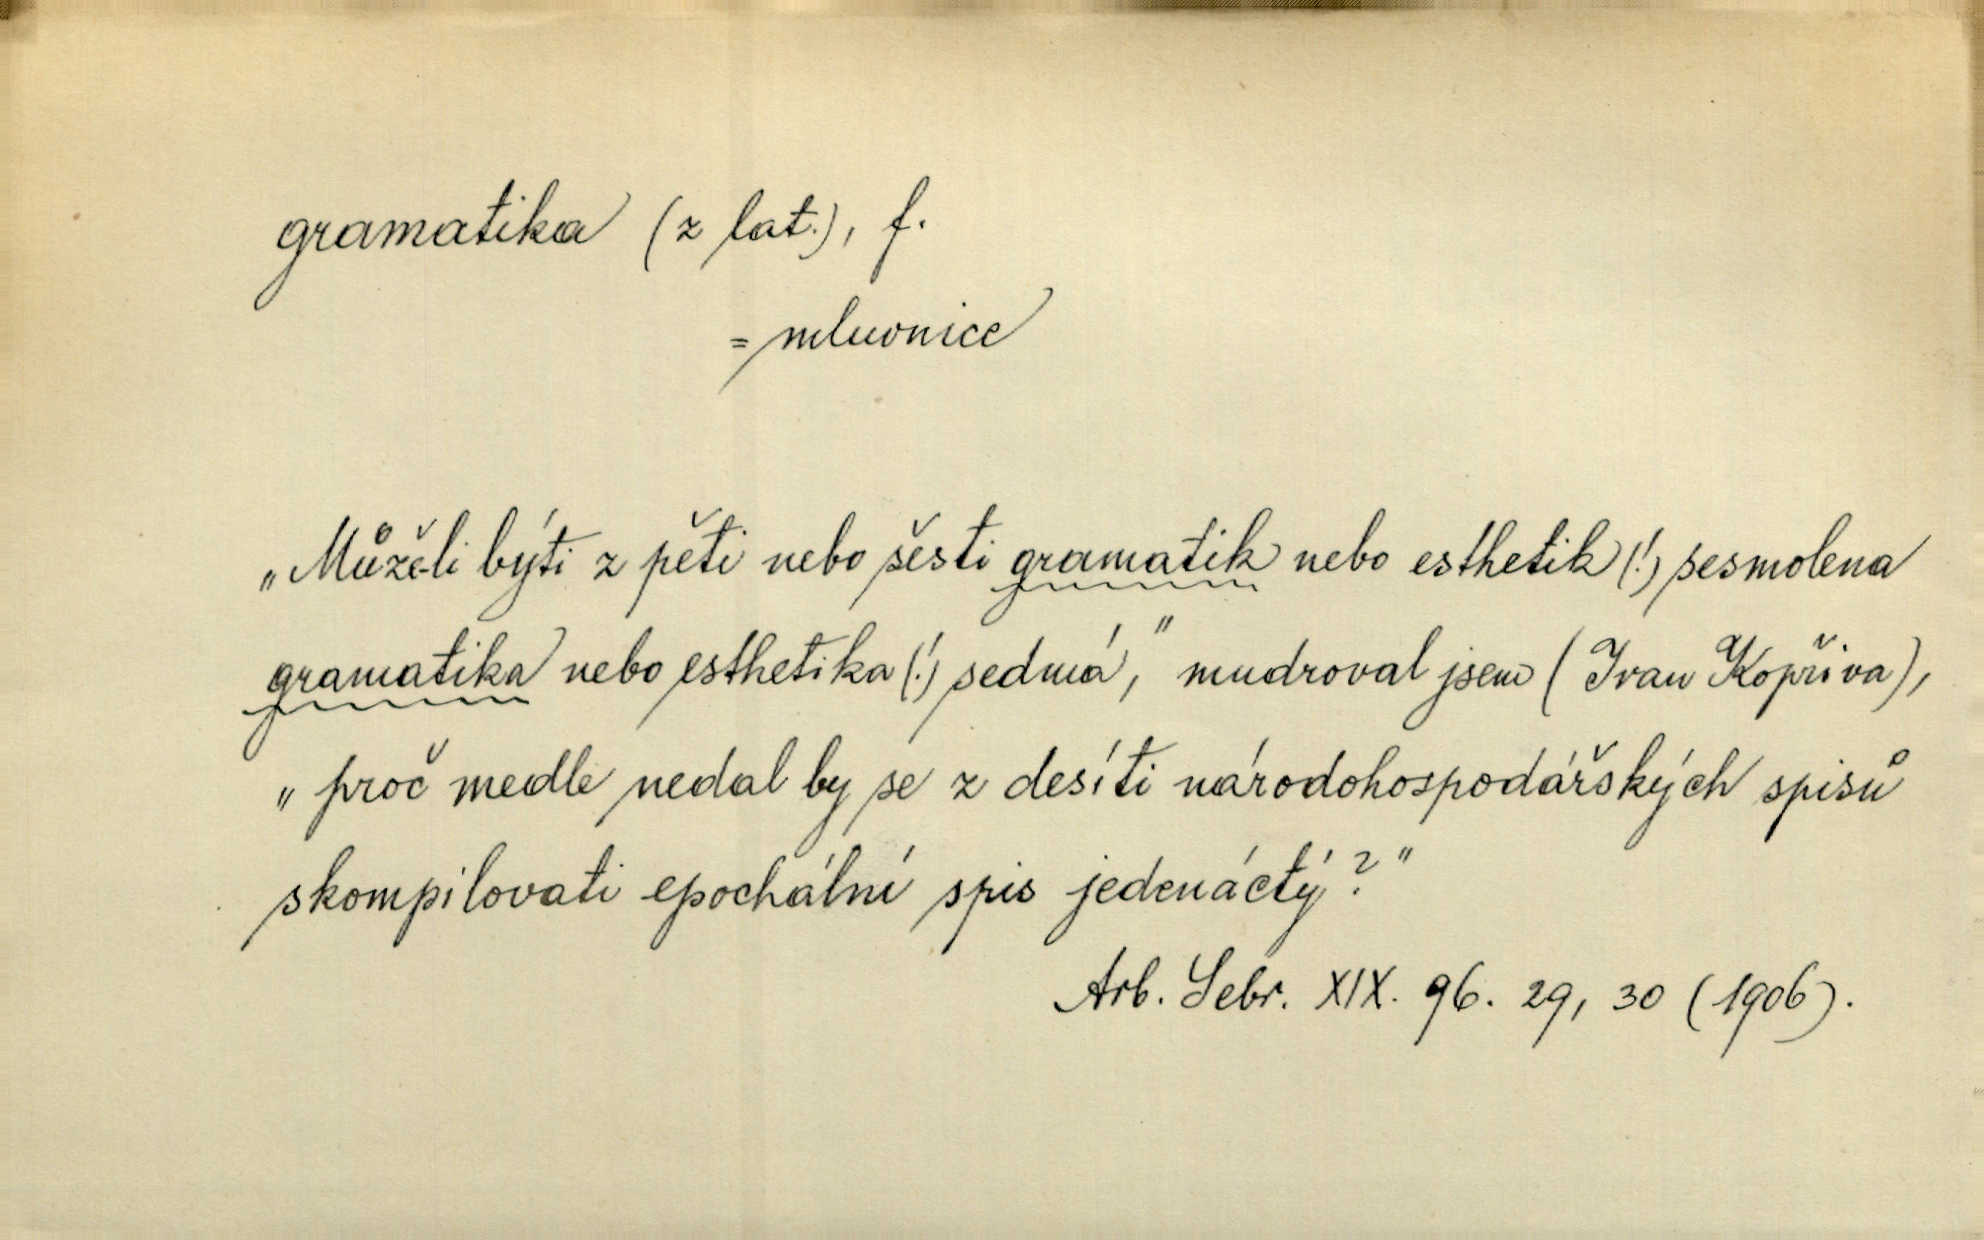 gramatika (z lat.), f.
= mluvnice
„Může-li býti z pěti nebo šesti gramatik nebo esthetik (!) sesmolena
gramatika nebo esthetika (!) sedmá,“ mudroval jsem (Ivan Kopřiva),
„proč medle nedal by se z desíti národohospodářských spisů
skompilovati epochální spis jedenáctý?“
Arb. Sebr. XIX. 96. 29, 30 (1906).